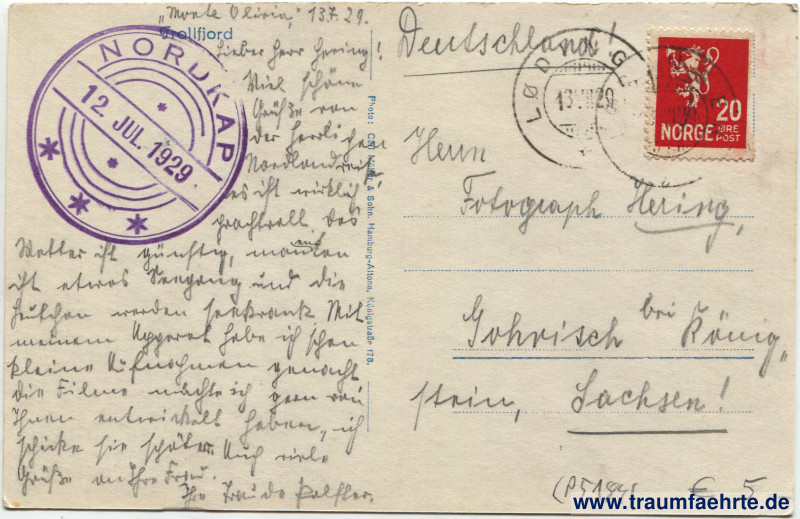 "Monte Olivia," 13.7.29.
Trollfjord
Lieber Herr Hering!
Viel schöne
Grüße von
der herrlichen
Nordlandreise
es ist wirklich
prachtvoll das
Wetter ist günstig, manchen
ist etwas Seegang und die
werden seekrank Mit
meinem Apparat habe ich schon
kleine Aufnahmen gemacht
die Filme möchte ich gern von
Ihnen entwickelt haben, ich
schicke sie später. Auch viele
Grüße an Ihre Frau.
Ihre Traude
NORDKAP
12. JUL. 1929
Photo: Carl Müller & Sohn, Hamburg-Altona, Königstraße 178.
Deutschland!
LØDINGEN
13 VII 29
20
NORGE ØRE
POST
Herrn
Fotograph Hering,
Gohrisch bei König„
stein, Sachsen!
€ 5
www.traumfaehrte.de